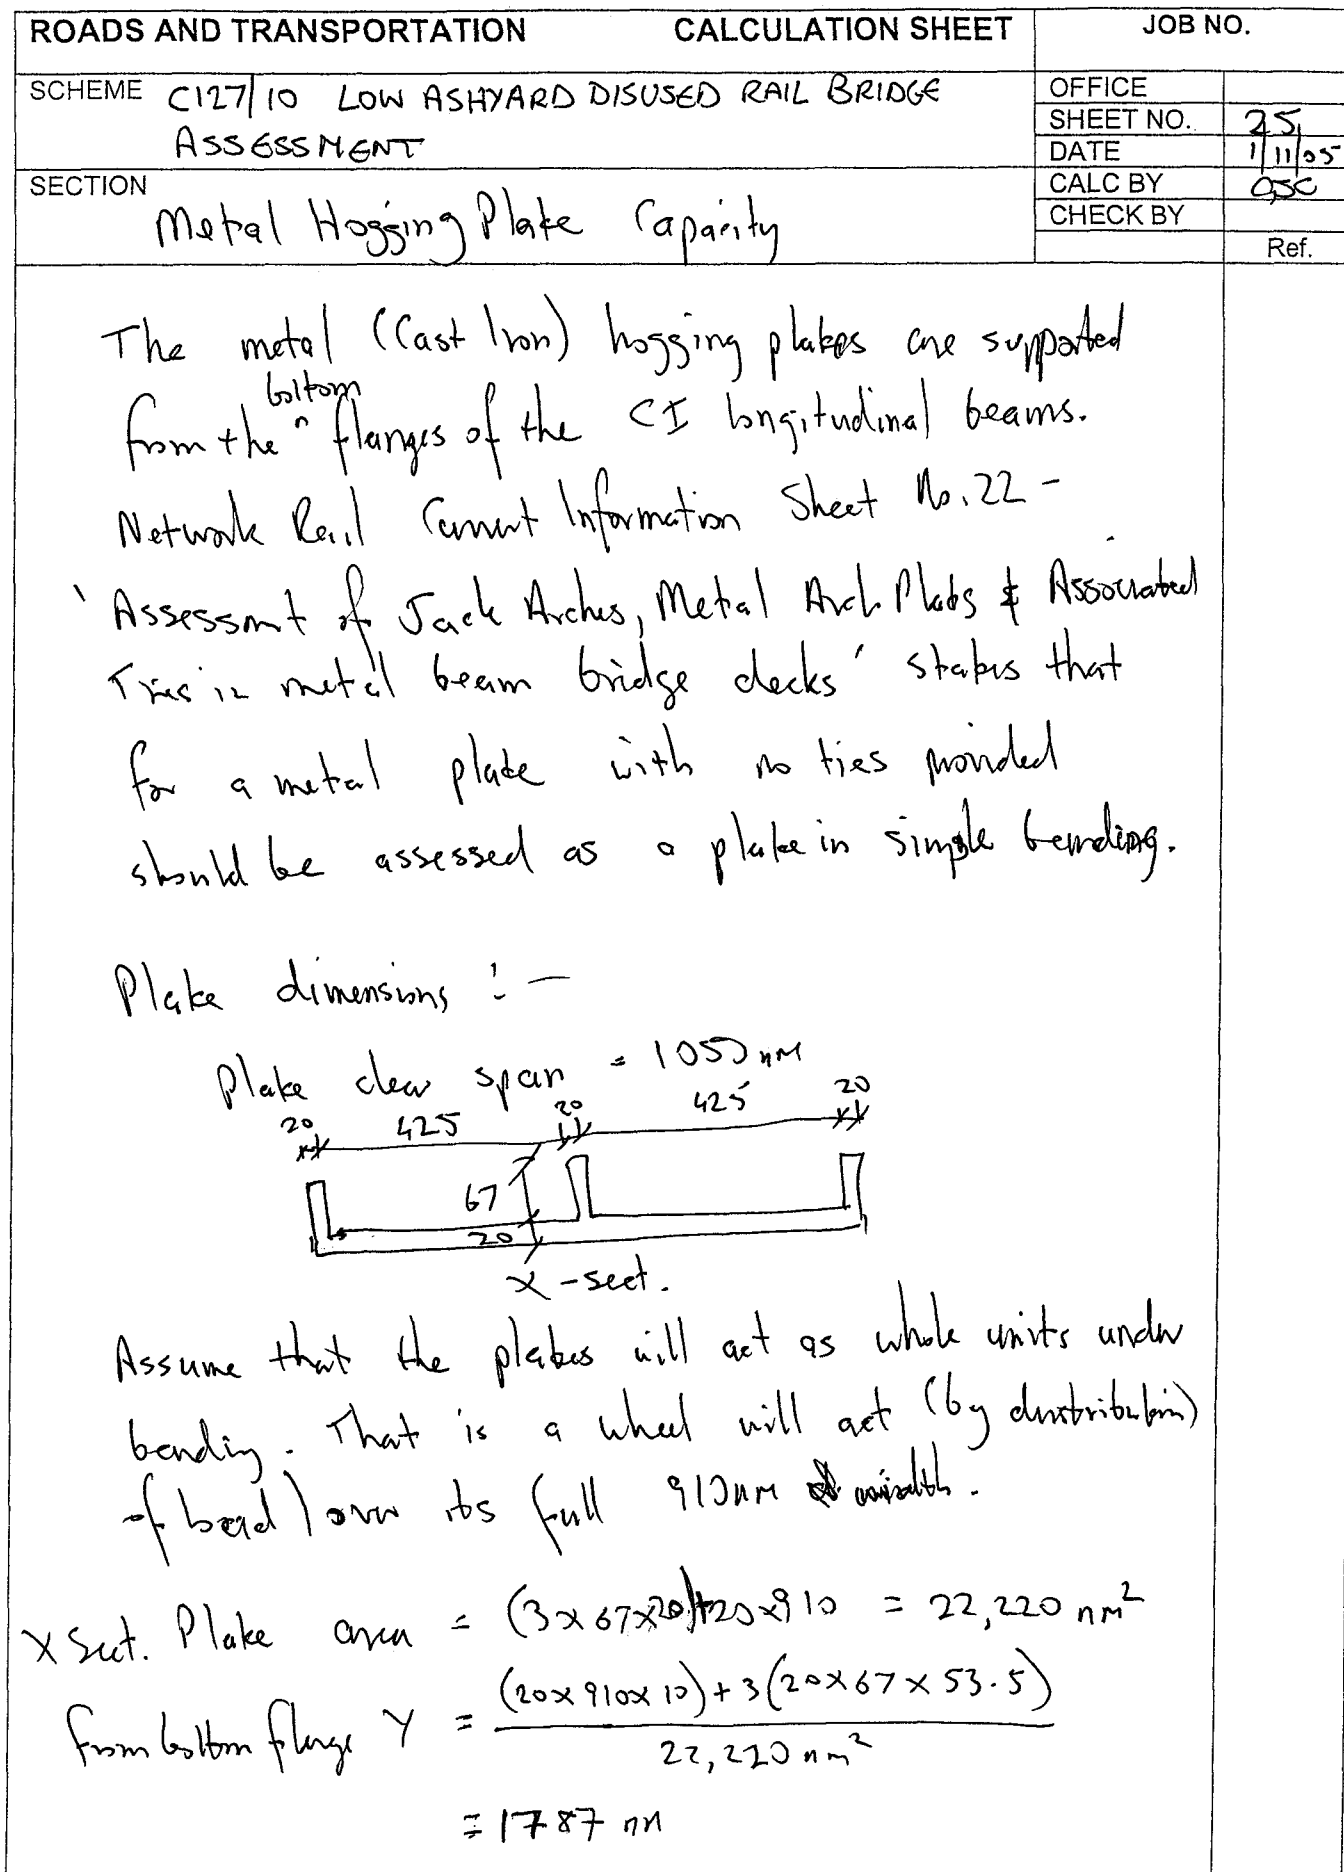 ROADS AND TRANSPORTATION CALCULATION SHEET JOB NO.
SCHEME C127/10 LOW ASHYARD DISUSED RAIL BRIDGE
ASSESSMENT
OFFICE
SHEET NO. 25
DATE 1/11/05
SECTION Metal Hogging Plate Capacity
CALC BY
CHECK BY
Ref.
The metal (Cast Iron) hogging plates are supported
bottom
from the ^ flanges of the CI longitudinal beams.
Network Rail Current Information Sheet No. 22 -
'Assessment of Jack Arches, Metal Arch Plates & Associated
Ties in metal beam bridge decks' states that
for a metal plate with no ties provided
should be assessed as a plate in simple bending.
Plate dimensions :-
Plate clear span = 1050 mm
20 425 20 425 20
67
20
X-sect.
Assume that the plates will act as whole units under
bending. That is a wheel will act (by distribution)
of load) over its full 910mm width.
X Sect. Plate area = (3 x 67 x 20) + 20 x 910 = 22,220 mm²
from bottom flange Y = (20 x 910 x 10) + 3(20 x 67 x 53.5)
22,220 mm²
= 17.87 mm